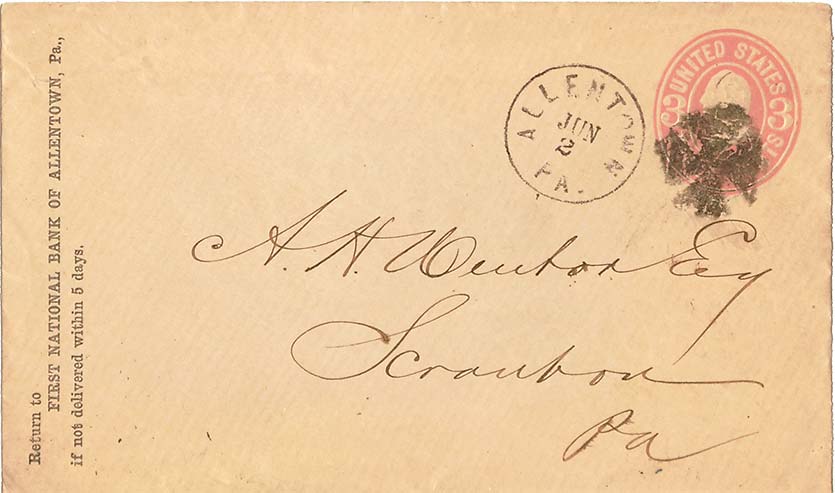 Return to
FIRST NATIONAL BANK OF ALLENTOWN, Pa.,
if not delivered within 5 days.
ALLENTOWN
JUN
2
PA.
UNITED STATES
3 3
A. H. Winton Esq
Scranton
Pa